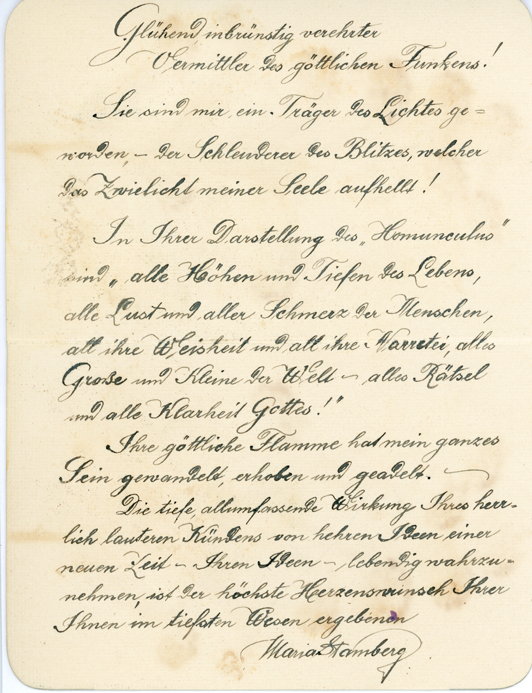 Glühend inbrünstig verehrter
Vermittler des göttlichen Funkens!
Sie sind mir ein Träger des Lichtes ge=
worden, – der Schleuderer des Blitzes, welcher
das Zwielicht meiner Seele aufhellt!
In Ihrer Darstellung des „Homunculus"
sind „alle Höhen und Tiefen des Lebens,
alle Lust und aller Schmerz der Menschen,
all ihre Weisheit und all ihre Narretei, alles
Große und Kleine der Welt – alles Rätsel
und alle Klarheit Gottes!"
Ihre göttliche Flamme hat mein ganzes
Sein gewandelt, erhoben und geadelt. –
Die tiefe, allumfassende Wirkung Ihres herr-
lich lauteren Kündens von hehren Ideen einer
neuen Zeit – Ihren Ideen – lebendig wahrzu-
nehmen, ist der höchste Herzenswunsch Ihrer
Ihnen im tiefsten Wesen ergebenen
Maria Stamberg